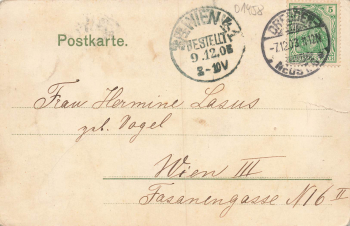 01458
Postkarte.
WIEN
BESTELLT
9.12.03
2-10V
DRESDEN
-7.12.03.11-12N
NEUST.
5
Frau Hermine Lasus
geb. Vogel
Wien III
Fasanengasse N16 II